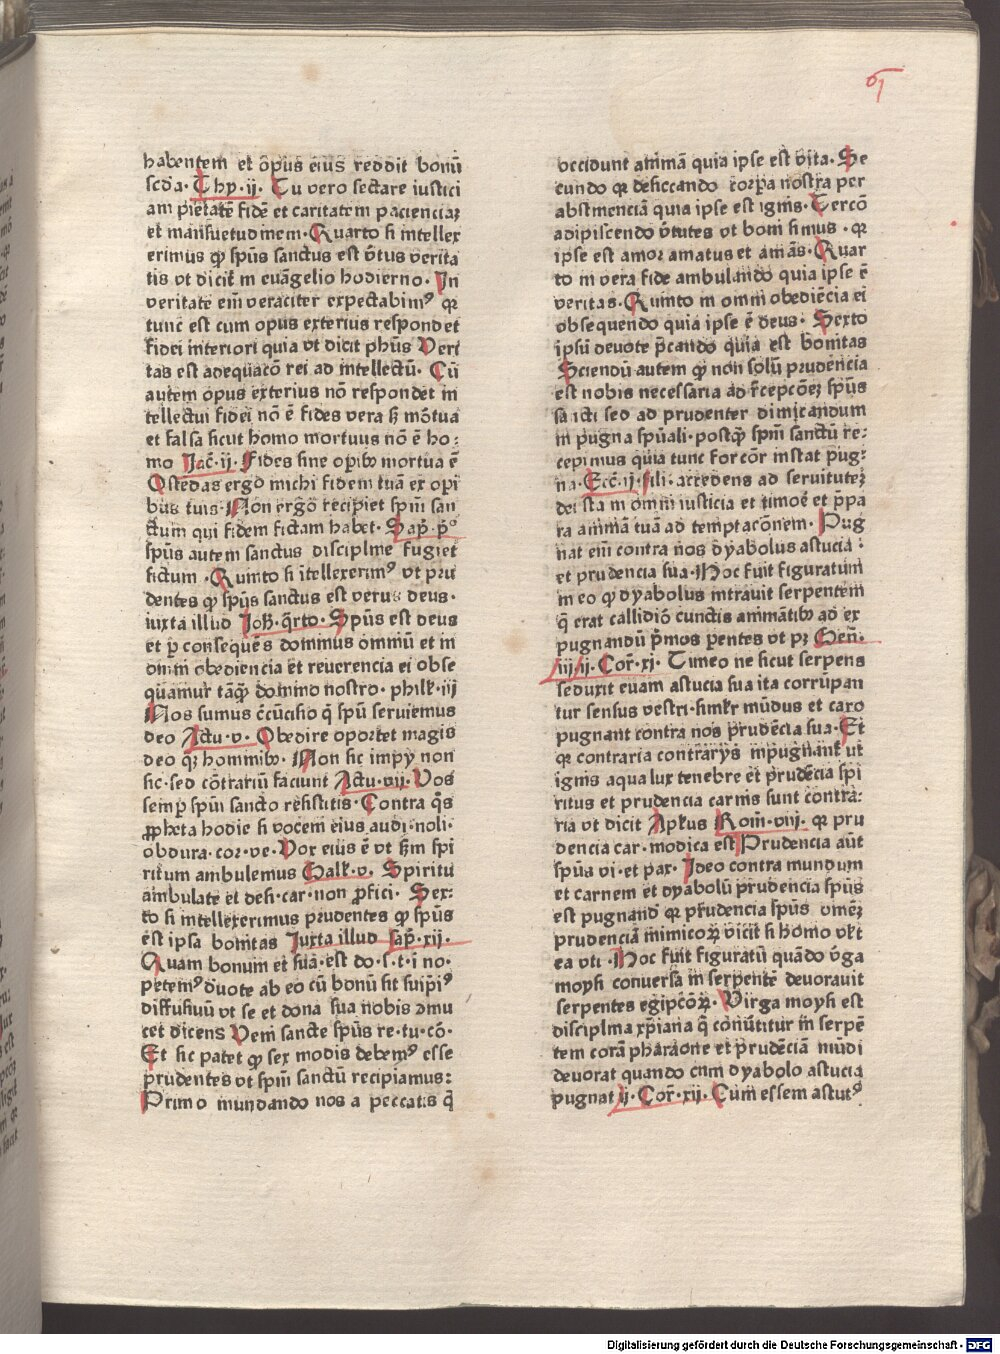 habentem et op̄us eius reddit bonū
scd̄a · Thy · ij · Tu vero sectare iustici
am pietatē fidē et caritatem pacienciaꝫ
et mansuetudinem · Quarto si intellex
erimus ꝙ sp̄us sanctus est v̄tus verita
tis vt dicit̄ in euāgelio hodierno · In
veritate em̄ veraciter expectabimꝰ qꝛ
tunc est cum opus exterius respondet
fidei interiori quia vt dicit ph̄us Veri
tas est adequacō rei ad intellectū · Cū
autem opus exterius nō respondet in
tellectui fidei nō ē fides vera sꝫ mōtua
et falsa sicut homo mortuus nō ē ho⸗
mo Jac̄ · ij · Fides sine opibꝫ mortua ē
Ostēdas ergo michi fidem tuā ex opi
bus tuis · Non ergo recipiet sp̄m san
ctum qui fidem fictam habet · Sap̄ · p̄ᵒ
sp̄us autem sanctus discipline fugiet
fictum · Quinto si ītellexerimꝰ vt pru
dentes ꝙ sp̄us sanctus est verus deus ·
iuxta illud Joh̄ · q̄rto · Sp̄us est deus
et ꝑ consequēs dominus omniū et in
omni obediencia et reuerencia ei obse
quamur tāꝙ domino nostro · philr̄ · iij
Nos sumus c̄cūcisio q̄ sp̄ū seruiemus
deo Actu · v · Obedire oportet magis
deo qꝫ hominibꝫ · Non sic impy non
sic · sed cōtrariū faciunt Actu · vij · Vos
semp sp̄m sancto resistitis · Contra q̄s
ꝓpheta hodie si vocem eius audi · noli ·
obdura · cor · ve · Vox eius ē vt sm̄ spi
ritum ambulemus Gall̄ · v · Spiritu
ambulate et desi · car · non ꝑfici · Sex⸗
to si intellexerimus prudentes ꝙ sp̄us
est ipsa bonitas Juxta illud sap̄ · xij ·
Quam bonum et suā · est do · s · t · i no ·
petemꝰ d̄uote ab eo cū bonū sit suip̄iꝰ
diffusiuū vt se et dona sua nobis ꝯmu
cet dicens Veni sancte sp̄us re · tu · cō ·
Et sic patet ꝙ sex modis debemꝰ esse
prudentes vt sp̄m sanctū recipiamus:
Primo mundando nos a peccatis q̄
occidunt animā quia ipse est vita · Se
cundo qꝛ desiccando corp̄a nostra per
abstinenciā quia ipse est ignis · Tercō
adipiscendo v̄tutes vt boni simus · qꝛ
ipse est amor amatus et amās · Quar
to in vera fide ambulando quia ipse ē
veritas · Quinto in omni obediēcia ei
obsequendo quia ipse ē deus · Sexto
ipsū deuote p̄cando quia est bonitas
Sciendū autem ꝙ non solū prudencia
est nobis necessaria ad r̄cepcōeꝫ sp̄us
sancti sed ad prudenter dimicandum
in pugna sp̄uali · postꝙ sp̄m sanctū re⸗
cepimus quia tunc forcōr instat pug⸗
na · Ecc̄ · ij · fili · accedens ad seruituteꝫ
dei sta in omni iusticia et timoē et p̄pa
ra animā tuā ad temptacōnem · Pug
nat em̄ contra nos dyabolus astucia ·
et prudencia sua · Hoc fuit figuratum
in eo ꝙ dyabolus intrauit serpentem
q̄ erat callidiō cunctis animātibꝫ ad ex
pugnandū p̄mos ꝑentes vt pꝫ Gen̄ ·
iij · ij · Cor̄ · xj · Timeo ne sicut serpens
seduxit euam astucia sua ita corrūpan
tur sensus vestri · similr̄ mūdus et caro
pugnant contra nos prudēcia sua · Et
qꝛ contraria contrarys inpugnāt̄ ut
ignis aqua lux tenebre et prudēcia spi
ritus et prudencia carnis sunt contra⸗
ria vt dicit Apl̄us Rom̄ · viij · qꝛ pru
dencia car · modica est Prudencia aūt
sp̄us vi · et pax · Ideo contra mundum
et carnem et dyabolū prudencia sp̄us
est pugnand̄ qꝛ prudencia sp̄us omēꝫ
prudenciā inimicoꝝ vicit si homo vlt̄
ea vti · Hoc fuit figuratū quādo v̄ga
moysi conuersa in serpentē deuorauit
serpentes egipcōꝝ · Virga moysi est
disciplina xp̄iana q̄ conūtitur in serpē
tem corā pharaone et prudēciā mūdi
deuorat quando cum dyabolo astucia
pugnat ij · Cor̄ · xij · Cum essem astutꝰ
Digitalisierung gefördert durch die Deutsche Forschungsgemeinschaft - DFG